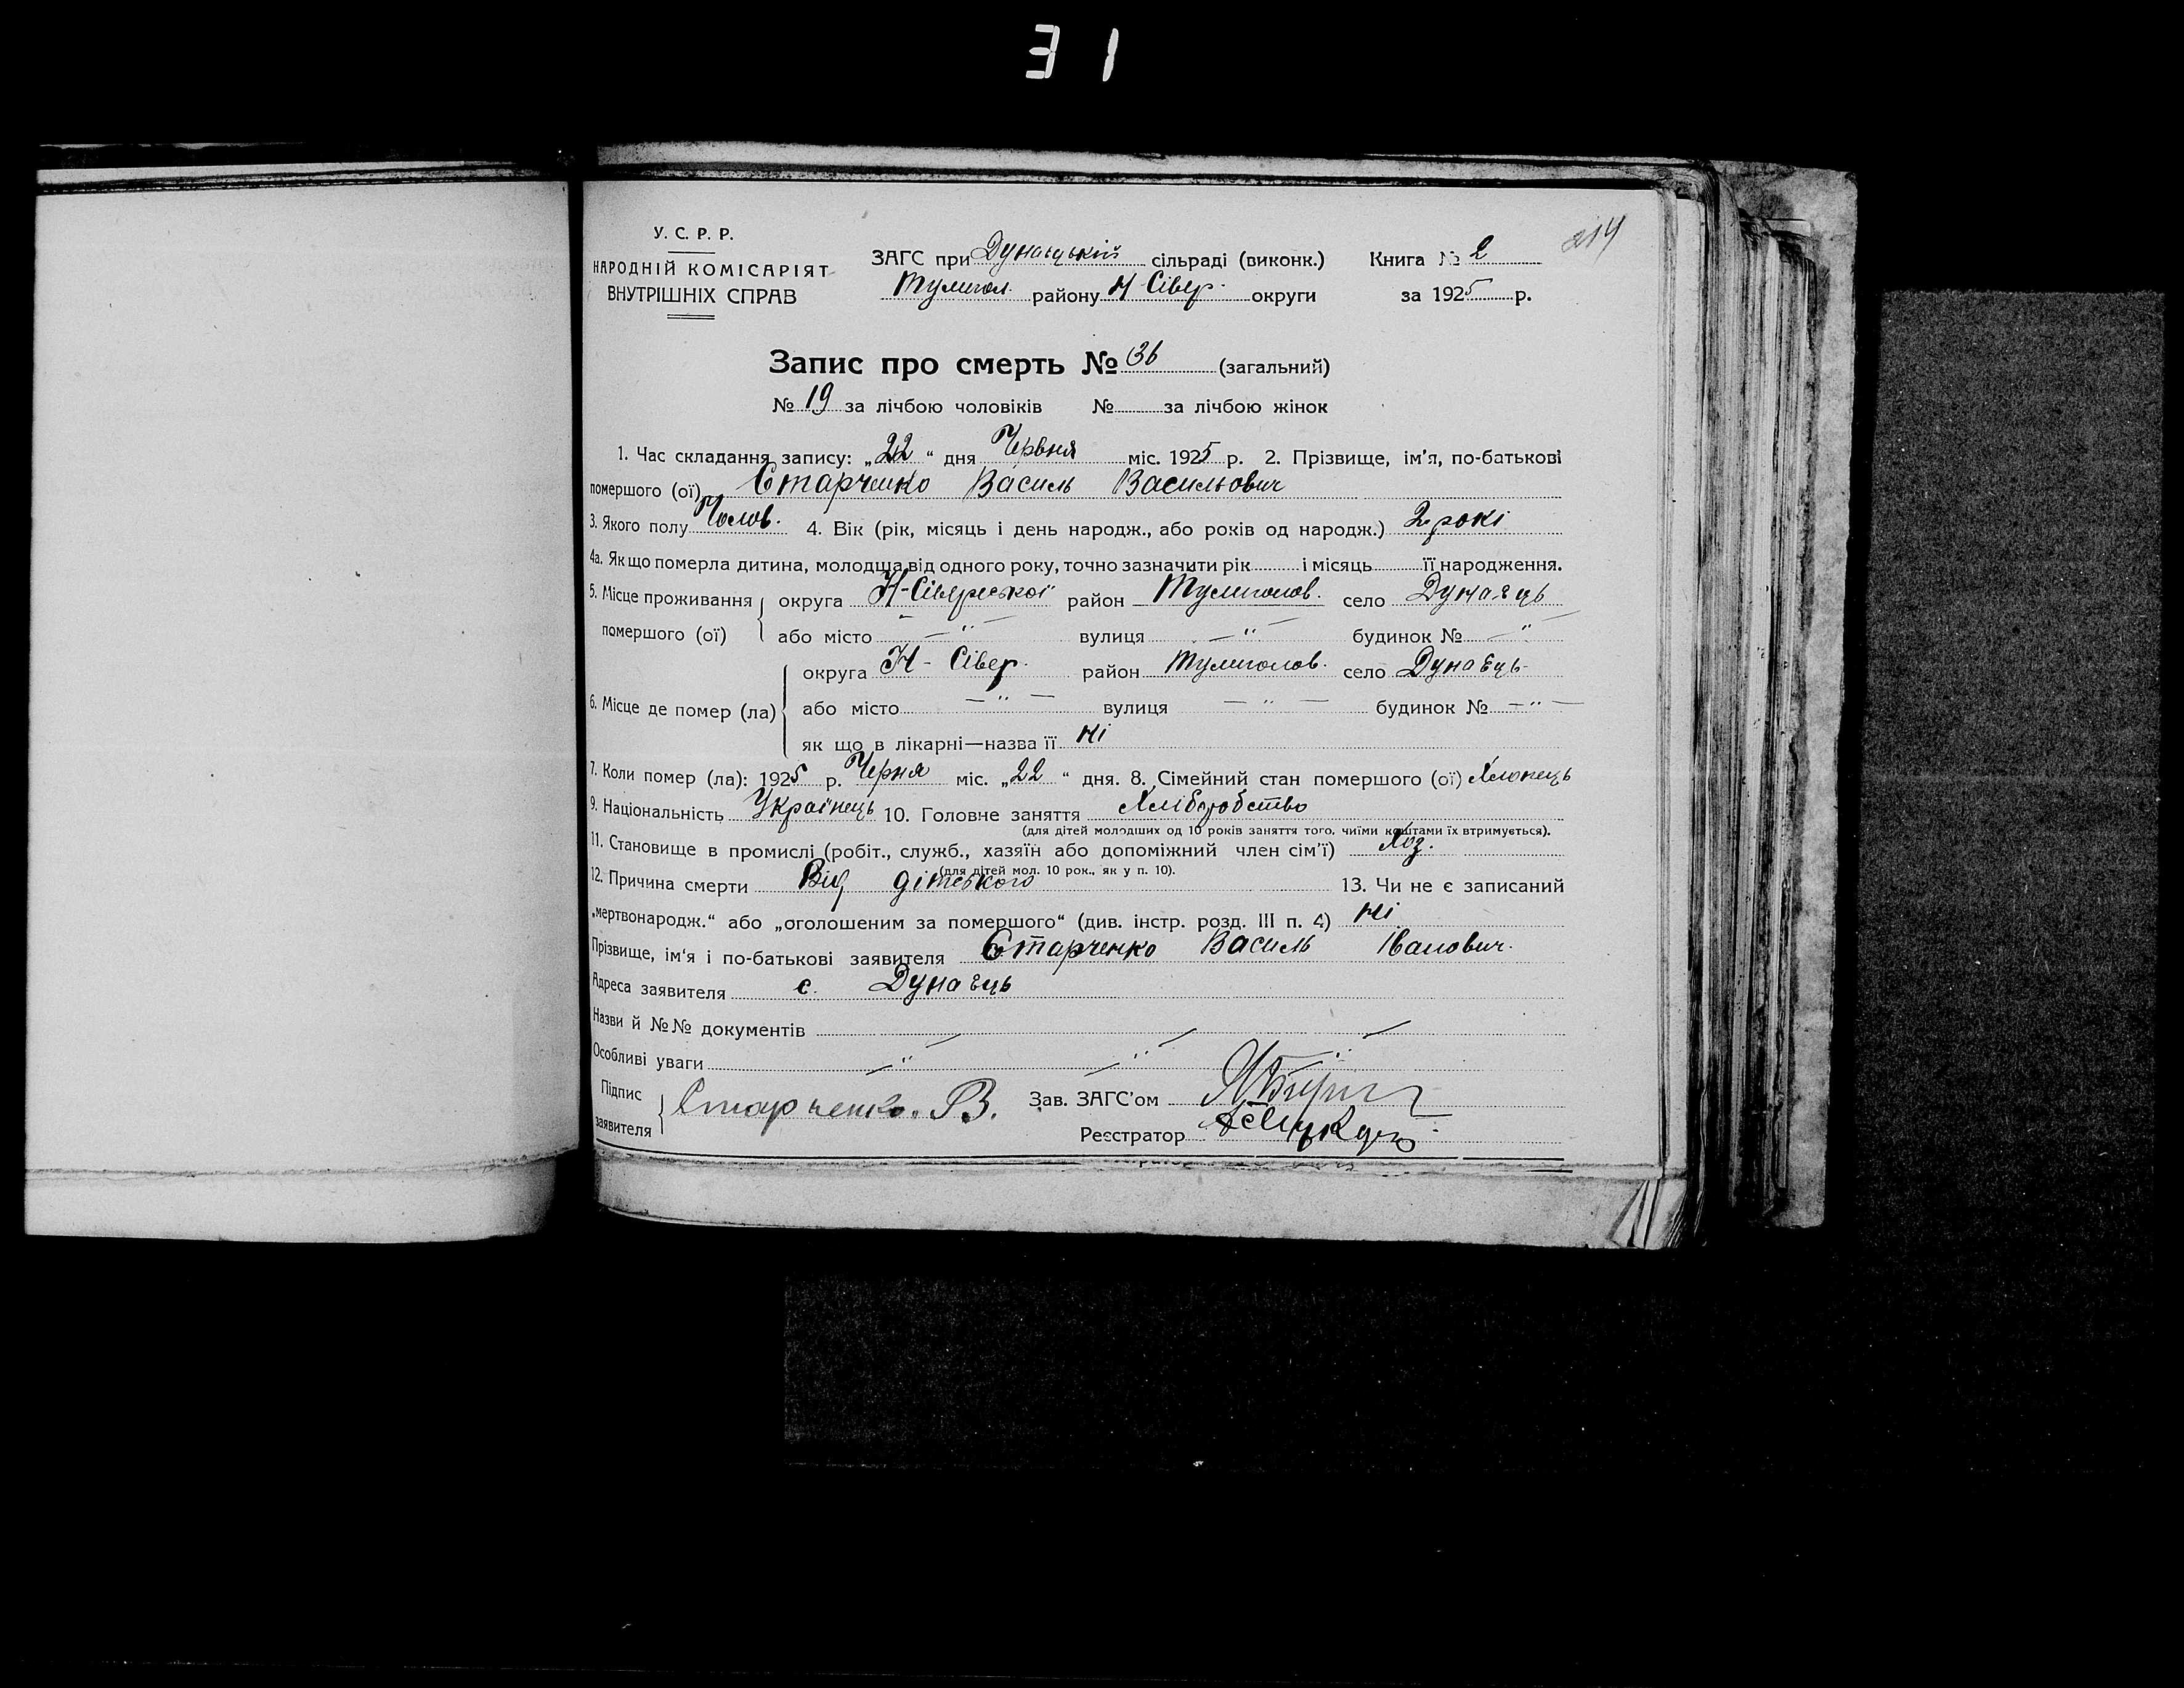 31
214
У. С. Р. Р.
НАРОДНІЙ КОМІСАРІЯТ
ВНУТРІШНІХ СПРАВ
ЗАГС при Дунаєцькій сільраді (виконк.) Книга № 2
Тулигол. району Н-Сівер. округи за 1925 р.
Запис про смерть № 36 (загальний)
№ 19 за лічбою чоловіків № за лічбою жінок
1. Час складання запису: „22“ дня Червня міс. 1925 р. 2. Прізвище, ім'я, по-батькові
помершого (ої) Старченко Василь Васильович
3. Якого полу Чолов. 4. Вік (рік, місяць і день народж., або років од народж.) 2 рокі
4а. Як що померла дитина, молодща від одного року, точно зазначити рік і місяць її народження.
5. Місце проживання помершого (ої) округа Н-Сіверської район Тулиголов. село Дунаєць
або місто — " — вулиця — " — будинок № — " —
6. Місце де помер (ла) округа Н-Сівер. район Тулиголов. село Дунаєць
або місто — " — вулиця — " — будинок № — " —
як що в лікарні—назва її ні
7. Коли помер (ла): 1925 р. Черня міс. „22“ дня. 8. Сімейний стан помершого (ої) Хлопець
9. Національність Українець 10. Головне заняття Хліборобство
(для дітей молодших од 10 років заняття того, чиїми коштами їх втримується).
11. Становище в промислі (робіт., служб., хазяїн або допоміжний член сім'ї) Хоз.
(для дітей мол. 10 рок., як у п. 10).
12. Причина смерти Від дітського 13. Чи не є записаний
„мертвонародж.“ або „оголошеним за помершого“ (див. інстр. розд. III п. 4) ні
Прізвище, ім'я і по-батькові заявителя Старченко Василь Іванович.
Адреса заявителя с. Дунаєць
Назви й №№ документів
Особливі уваги
Підпис заявителя Старченко. В. Зав. ЗАГС'ом
Реєстратор